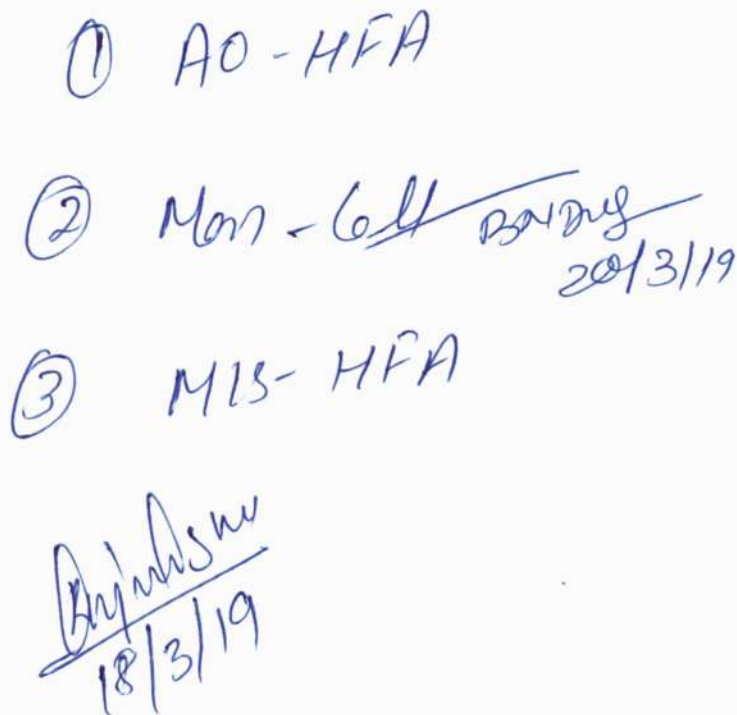 ① AO-HFA
② Mon-Cell
20/3/19
③ MIS-HFA
18/3/19